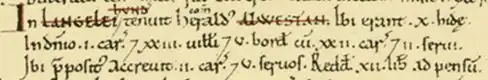 hund com
In LANGELEI tenuit Herald' ALWESTAN. Ibi erant .x. hidę.
In dnio .i. car' 7 xxiii uilli 7 v. bord' cu xx ii car' 7 ii serui.
Ibi pposit' accreuit .i. car' 7 v. seruos. Redd' xii lib' ad pensu.